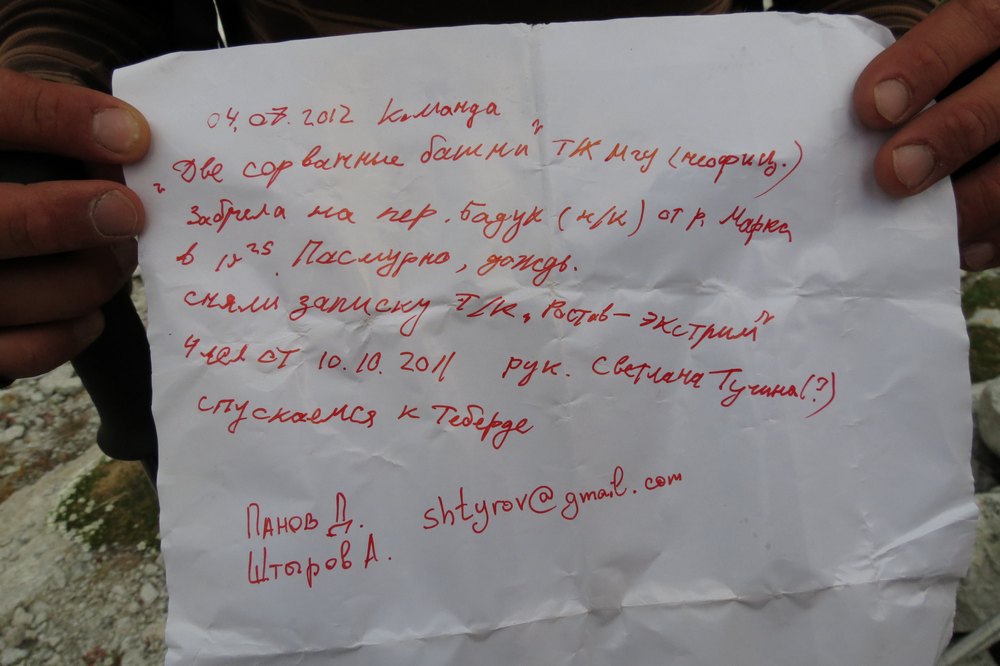 04.07.2012 Команда
"Две сорванные башни" Т/К МГУ (неофиц.)
Забрела на пер. Бадук (н/к) от р. Марка
в 12 25. Пасмурно, дождь.
сняли записку Т/К "Ростов-экстрим"
4 чел от 10.10.2011 рук. Светлана Тучина(?)
спускаемся к Теберде
Панов Д. shtyrov@gmail.com
Штыров А.